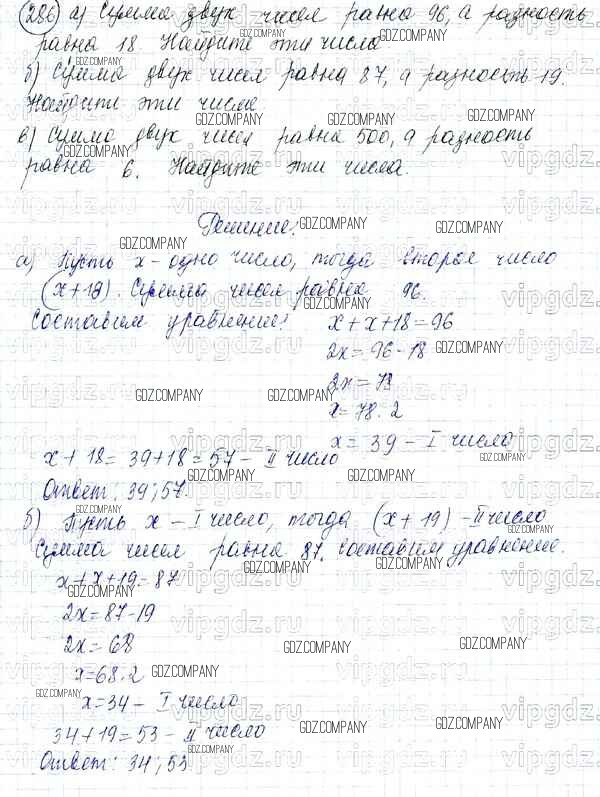 286 а) Сумма двух чисел равна 96, а разность
равна 18. Найдите эти числа.
б) Сумма двух чисел равна 87, а разность 19.
Найдите эти числа
в) Сумма двух чисел равна 500, а разность
равна 6. Найдите эти числа.
Решение:
а) Пусть x - одно число, тогда второе число
(x+18). Сумма чисел равна 96.
Составим уравнение:
x+x+18=96
2x=96-18
2x=78
x=78:2
x=39 - I число
x+18=39+18=57 - II число
Ответ: 39; 57.
б) Пусть x - I число, тогда (x+19) - II число
Сумма чисел равна 87. Составим уравнение.
x+x+19=87
2x=87-19
2x=68
x=68:2
x=34 - I число
34+19=53 - II число
Ответ: 34; 53
GDZ.COMPANY
vipgdz.ru